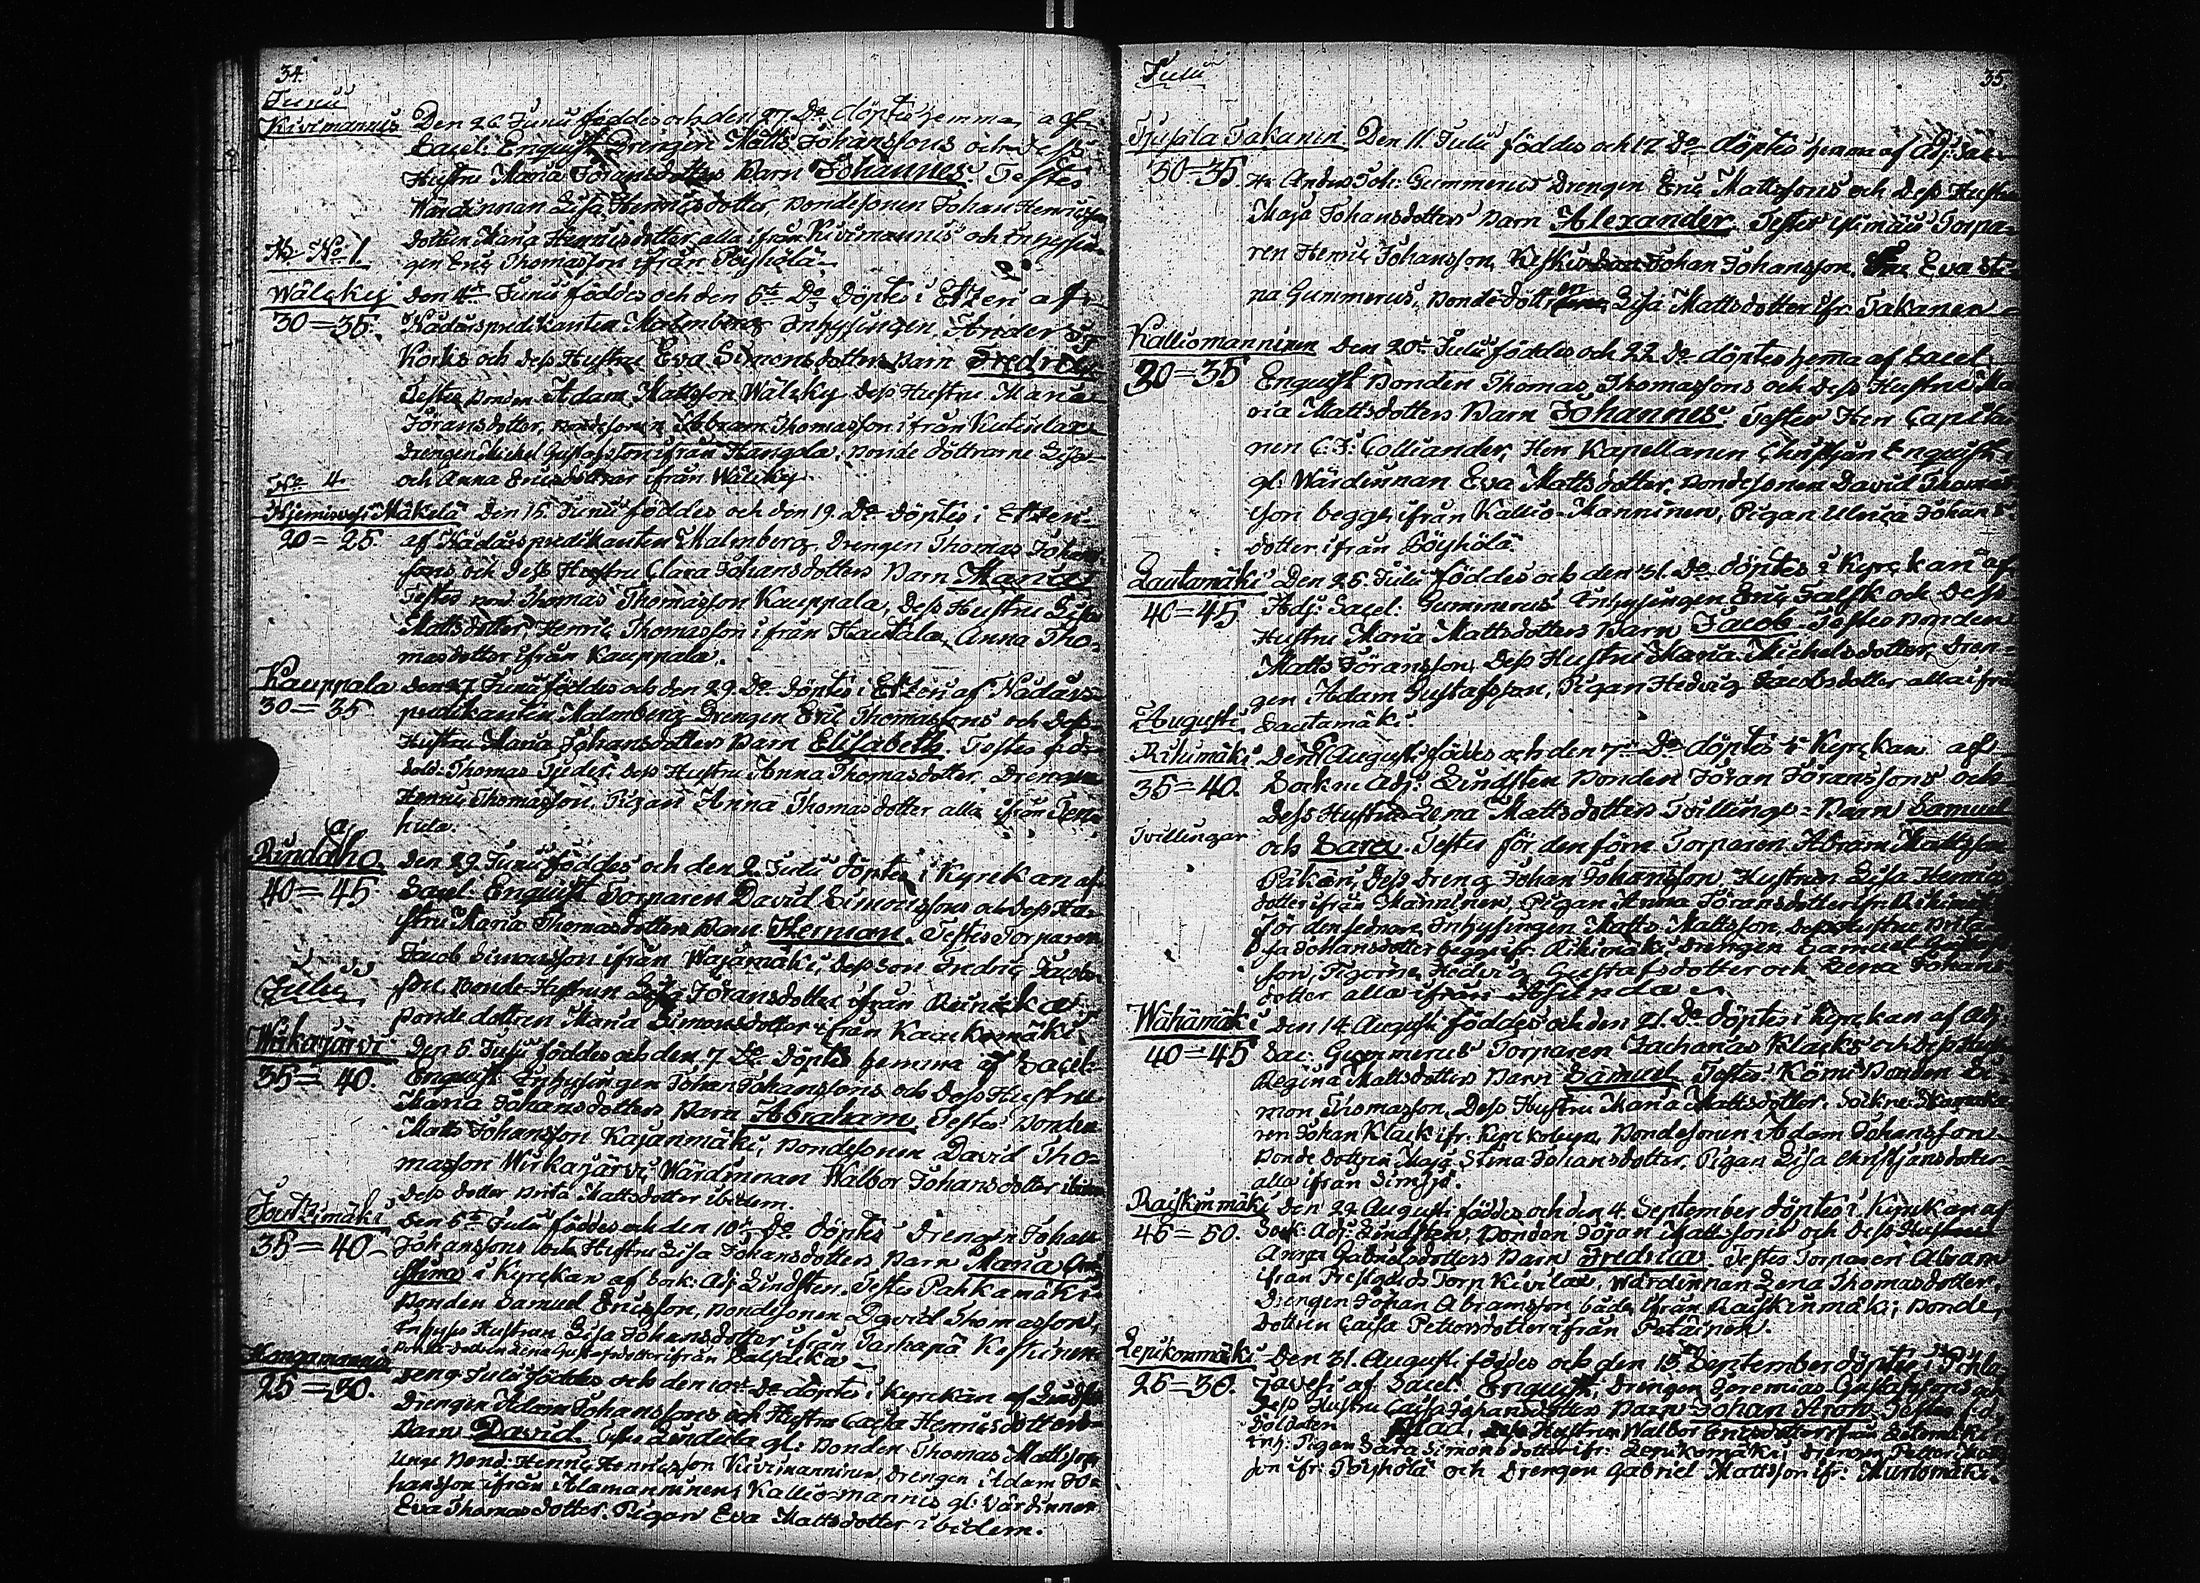 34.
Junii
Kivimannis Den 26 Junii föddes och den 27 Do döptes hemma af
Sacel. Enquist Drengen Matts Johanssons och dess
Hustru Maria Göransdotters Barn Johannes. Testes
Wärdinnan Lisa Henricsdotter, Bondesonen Johan Henricsson
dottren Maria Henricsdotter alla ifrån Kivimannis och Inhysin-
gen Eric Thomasson ifrån Pöyhölä.
No 1
Wälcky Den 4de Junii föddes och den 5te Do döptes i Etzeri af
30=35. Nådårspredikanten Malmberg Inhysingen Anders
Korks och dess Hustru Eva Simonsdotters Barn Fredric
Testes Bonden Adam Mattsson Wälcky dess Hustru Maria
Göransdotter, Bondesonen Abram Thomasson ifrån
Drengen Michel Gustafsson ifrån Hangola, Bonde döttrarne Lisa
och Anna Ericsdöttrar ifrån Wälcky.
No 4.
Mäkelä Den 15 Junii föddes och den 19. Do döptes i Etzeri
20=25. af Nådårspredikanten Malmberg, Drengen Thomas Johans-
sons och dess Hustru Clara Johansdotters Barn Maria
Testes Thomas Thomasson Kauppala, Dess Hustru Lisa
Mattsdotter, Henric Thomasson ifrån Hautala, Anna Tho-
masdotter ifrån Kauppala.
Kauppala Den 27 Junii föddes och den 29. Do döptes i Etzeri af Nådårs-
30=35 predikanten Malmberg Drengen Eric Thomassons och dess
Hustru Maria Johansdotters Barn Elisabeth. Testes
Sold. Thomas dess Hustru Anna Thomasdotter. Drengen
Henric Thomasson, Pigan Anna Thomasdotter alla ifrån
hula.
Rindaho Den 29 Junii föddes och den 2 Julii döptes i Kyrckan af
40=45 Sacel. Enquist Torparen David Simonssons och dess Hu-
stru Maria Thomasdotters Barn Herman. Testes Torparen
Jacob Simonsson ifrån Wajärmäki, Dess Son Fredric Jacobs-
Julii son Bonde-Hustrun Lisa Göransdotter ifrån
Bonde dottren Maria Simonsdotter ifrån
Wirkajärvi Den 5 Julii föddes och den 7 Do döptes hemma af Sacel.
35=40. Enquist Inhysingen Johan Johanssons och Dess Hustru
Maria Johansdotters Barn Abraham Testes Bonden
Matts Johansson Kajanmäki, Bondesonen David Tho-
masson Wirkajärvi, Wärdinnan Walbor Johansdotter ibidem
Dess dotter Brita Mattsdotter ibidem.
Den 5te Julii föddes och den 10de Do döptes Drengen Johan
35=40 Johanssons och Hustru Lisa Johansdotters Barn Maria
i Kyrckan af Sok: Adj: Lindsten. Testes Pahkamäki
Bonden Samuel Ericsson, Bondesonen David Thomasson,
Inhyses Hustrun Lisa Johansdotter ifrån
Bonde dottren Lena ifrån
Den 9 Julii föddes och den 10de Do döptes i Kyrckan af Lindsten
25=30. Drengen Adam Johanssons och Hustru Caisa Henricsdotters
Barn David. gl: Bonden Thomas Mattsson
Henric Henricsson Kivimanninen, Drengen Adam Jo-
hansson ifrån Alamanninen, Kallio-mannis gl: Värdinnan
Eva Thomasdotter. Pigan Eva Mattsdotter ibidem.
Julii 35.
Takanen Den 11. Julii föddes och 17 Do döptes hemma af Adj: Sac-
30=35 Hr Anders Joh: Gummerus Drengen Eric Mattssons och Dess Hustru
Maja Johansdotters Barn Alexander. Testes Torpa-
ren Henric Johansson, Johan Johansson, Eva Sti-
na Gummerus, Bonde Dottren Lisa Mattsdotter ifr: Takanen
Kalliomanninen Den 20de Julii föddes och 22 Do döptes hema af Sacel.
30=35 Enquist Bonden Thomas Thomassons och Dess Hustru Ma-
ria Mattsdotters Barn Johannes. Testes Herr Capite-
nen C: J: Colliander, Herr Kapellanen Christian Enquist
gl: Wärdinnan Eva Mattsdotter, Bondesonen David Thomas-
son begge ifrån Kallio-Manninen, Pigan Ulrica Johans-
dotter ifrån Pöyhölä.
Lautamäki Den 25. Julii föddes och den 31. Do döptes i Kyrckan af
40=45 Adj: Sacel: Gummerus Inhysingen Eric Falsk och Dess
Hustru Maria Mattsdotters Barn Jacob. Testes Bonden
Matts Göransson, Dess Hustru Maria Michelsdotter, Dren-
gen Adam Gustafsson, Pigan Hedvig Jacobsdotter alla ifrån
Augusti Lautamäki.
Rikimäki Den Augusti föddes och den 7de Do döptes i Kyrckan af
35=40. Sockne Adj: Lindsten Bonden Göran Göranssons och
Dess Hustru Lena Mattsdotters Tvillings-Barn Samuel
Tvillingar och Sara. Testes för den förre Torparen Abram Mattsson
Päkäri, Dess Dreng Johan Johansson, Hustrun Lisa Henrics-
dotter ifrån Manninen, Pigan Anna Göransdotter ifr: Rikimäki
För den sednare Inhysingen Matts Mattsson, Dess Hustru
Johansdotter begge ifr: Rikimäki Drengen Samuel Gustafs-
son, Pigorne Hedvig Gustafsdotter och Lena Johans-
dotter alla ifrån
Wähämäki Den 14 Augusti föddes och den 21. Do döptes i Kyrckan af Adj:
40=45 Sac: Gummerus Torparen Zacharias Klacks och Dess Hustru
Regina Mattsdotters Barn Samuel Testes Bonden Si-
mon Thomasson, Dess Hustru Maria Mattsdotter, Sockne
ren Johan Klack ifr: Kyrckobyn, Bondesonen Adam Johansson
Bonde Dottren Maja Stina Johansdotter, Pigan Lisa Christiansdotter
alla ifrån Simsjö.
Raiskinmäki Den 22 Augusti föddes och den 4. September döptes i Kyrckan af
45=50. Sock: Adj: Lindsten Bonden Göran Mattssons och Dess Hustru
Anna Gabrielsdotters Barn Fredrica. Testes Torparen Abram
ifrån Prestgårds Torp Kivilax, Wärdinnan Lena Thomasdotter
Drengen Johan Abramsson både ifrån Raiskinmäki, Bonde
Dottren Caisa Pettersdotter ifrån Petäinen.
Lepikonmäki Den 31. Augusti föddes och den 15de September döptes i
25=30. af Sacel. Enquist, Drengen Jeremias Gustafssons och
Dess Hustru Caisa Johansdotters Barn Johan Testes
Soldaten Hustrun Walbor Ericsdotter ifrån
Inh: Pigan Sara Simonsdotter ifr: Lepikomäki, Drengen Petter Matts-
son ifr: Pöyhölä och Drengen Gabriel Mattsson ifr: